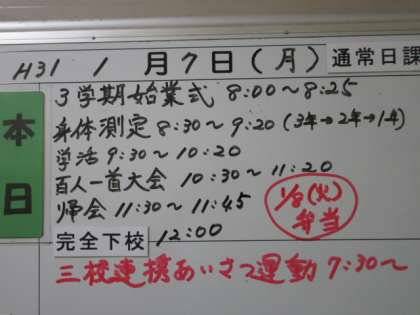 H31 1月7日(月) 通常日課
本日
3学期始業式 8:00〜8:25
身体測定 8:30〜9:20 (3年→2年→1年)
学活 9:30〜10:20
百人一首大会 10:30〜11:20
帰会 11:30〜11:45
1/8(火)
弁当
完全下校 12:00
三校連携あいさつ運動 7:30〜